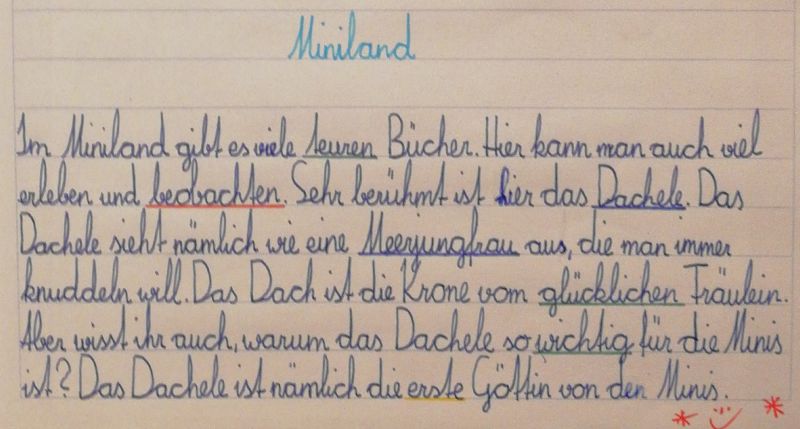 Miniland
Im Miniland gibt es viele teuren Bücher. Hier kann man auch viel
erleben und beobachten. Sehr berühmt ist hier das Dachele. Das
Dachele sieht nämlich wie eine Meerjungfrau aus, die man immer
knuddeln will. Das Dach ist die Krone vom glücklichen Fräulein.
Aber wisst ihr auch, warum das Dachele so wichtig für die Minis
ist? Das Dachele ist nämlich die erste Göttin von den Minis.